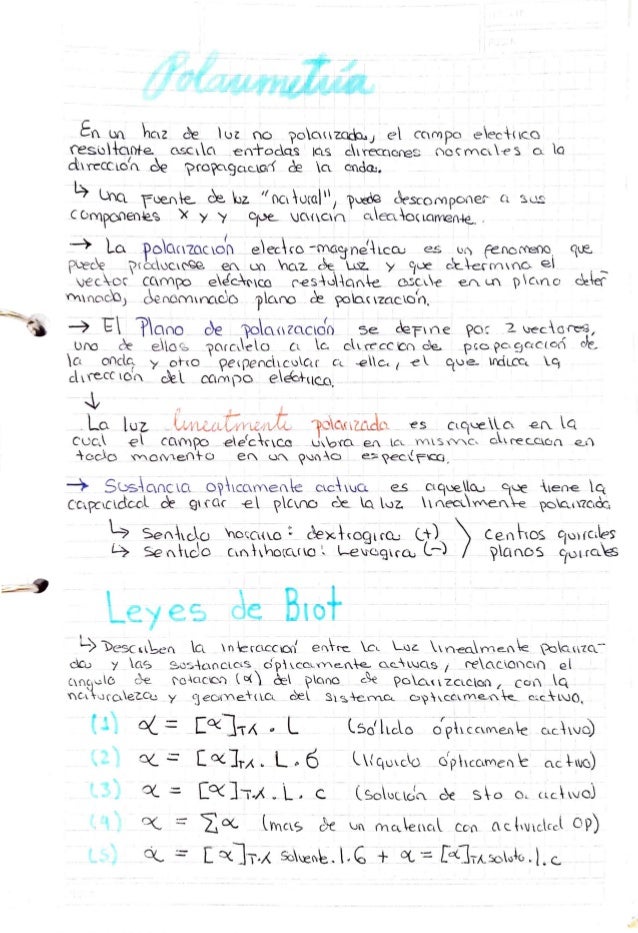 Polarimetría
En un haz de luz no polarizada, el campo electrico
resultante ascila entodas las direcciones normales a la
dirección de propagación de la onda.
↳ Una Fuente de luz "natural", puede descomponer a sus
componentes X y y que varían aleatoriamente.
→ La polarización electro-magnética es un fenomeno que
puede producirse en un haz de luz y que determina el
vector campo eléctrico restultante oscile en un plano deter
minado, denominado plano de polarización.
→ El Plano de polarización se define por 2 vectores,
uno de ellos paralelo a la direccion de propagación de
la onda y otro perpendicular a ella, el que indica la
dirección del campo eléctrico.
↓
La luz linealmente polarizada es aquella en la
cual el campo eléctrico vibra en la misma direccion en
todo momento en un punto específico.
→ Sustancia opticamente activa es aquella que tiene la
capacidad de girar el plano de la luz linealmente polarizada
↳ Sentido horario: dextrogira (+) ⟩ centros quirales
↳ Sentido antihorario: Levogira (-) ⟩ planos quirales
Leyes de Biot
↳ Describen la interacción entre la Luz linealmente polariza-
da y las sustancias ópticamente activas, relacionan el
angulo de rotacion (α) del plano de polarizacion, con la
naturaleza y geometria del sistema opticamente activo.
(1) α = [α]Tλ . L (sólido ópticamente activo)
(2) α = [α]Tλ . L . δ (líquido ópticamente activo)
(3) α = [α]T.λ . L . c (solución de sto o. activo)
(4) α = Σα (mas de un material con actividad OP)
(5) α = [α]T.λ solvente . l . δ + α = [α]Tλ soluto . l . c